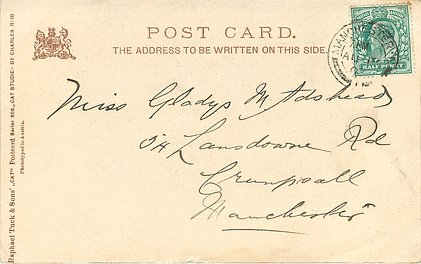 POST CARD.
THE ADDRESS TO BE WRITTEN ON THIS SIDE.
Raphael Tuck & Sons' "CAT" Postcard Series 805, "CAT STUDIES" BY CHARLES REID
Phototyped in Austria.
MANCHESTER
HALF PENNY
Miss Gladys M. Adshead
54 Lansdowne Rd
Crumpsall
Manchester